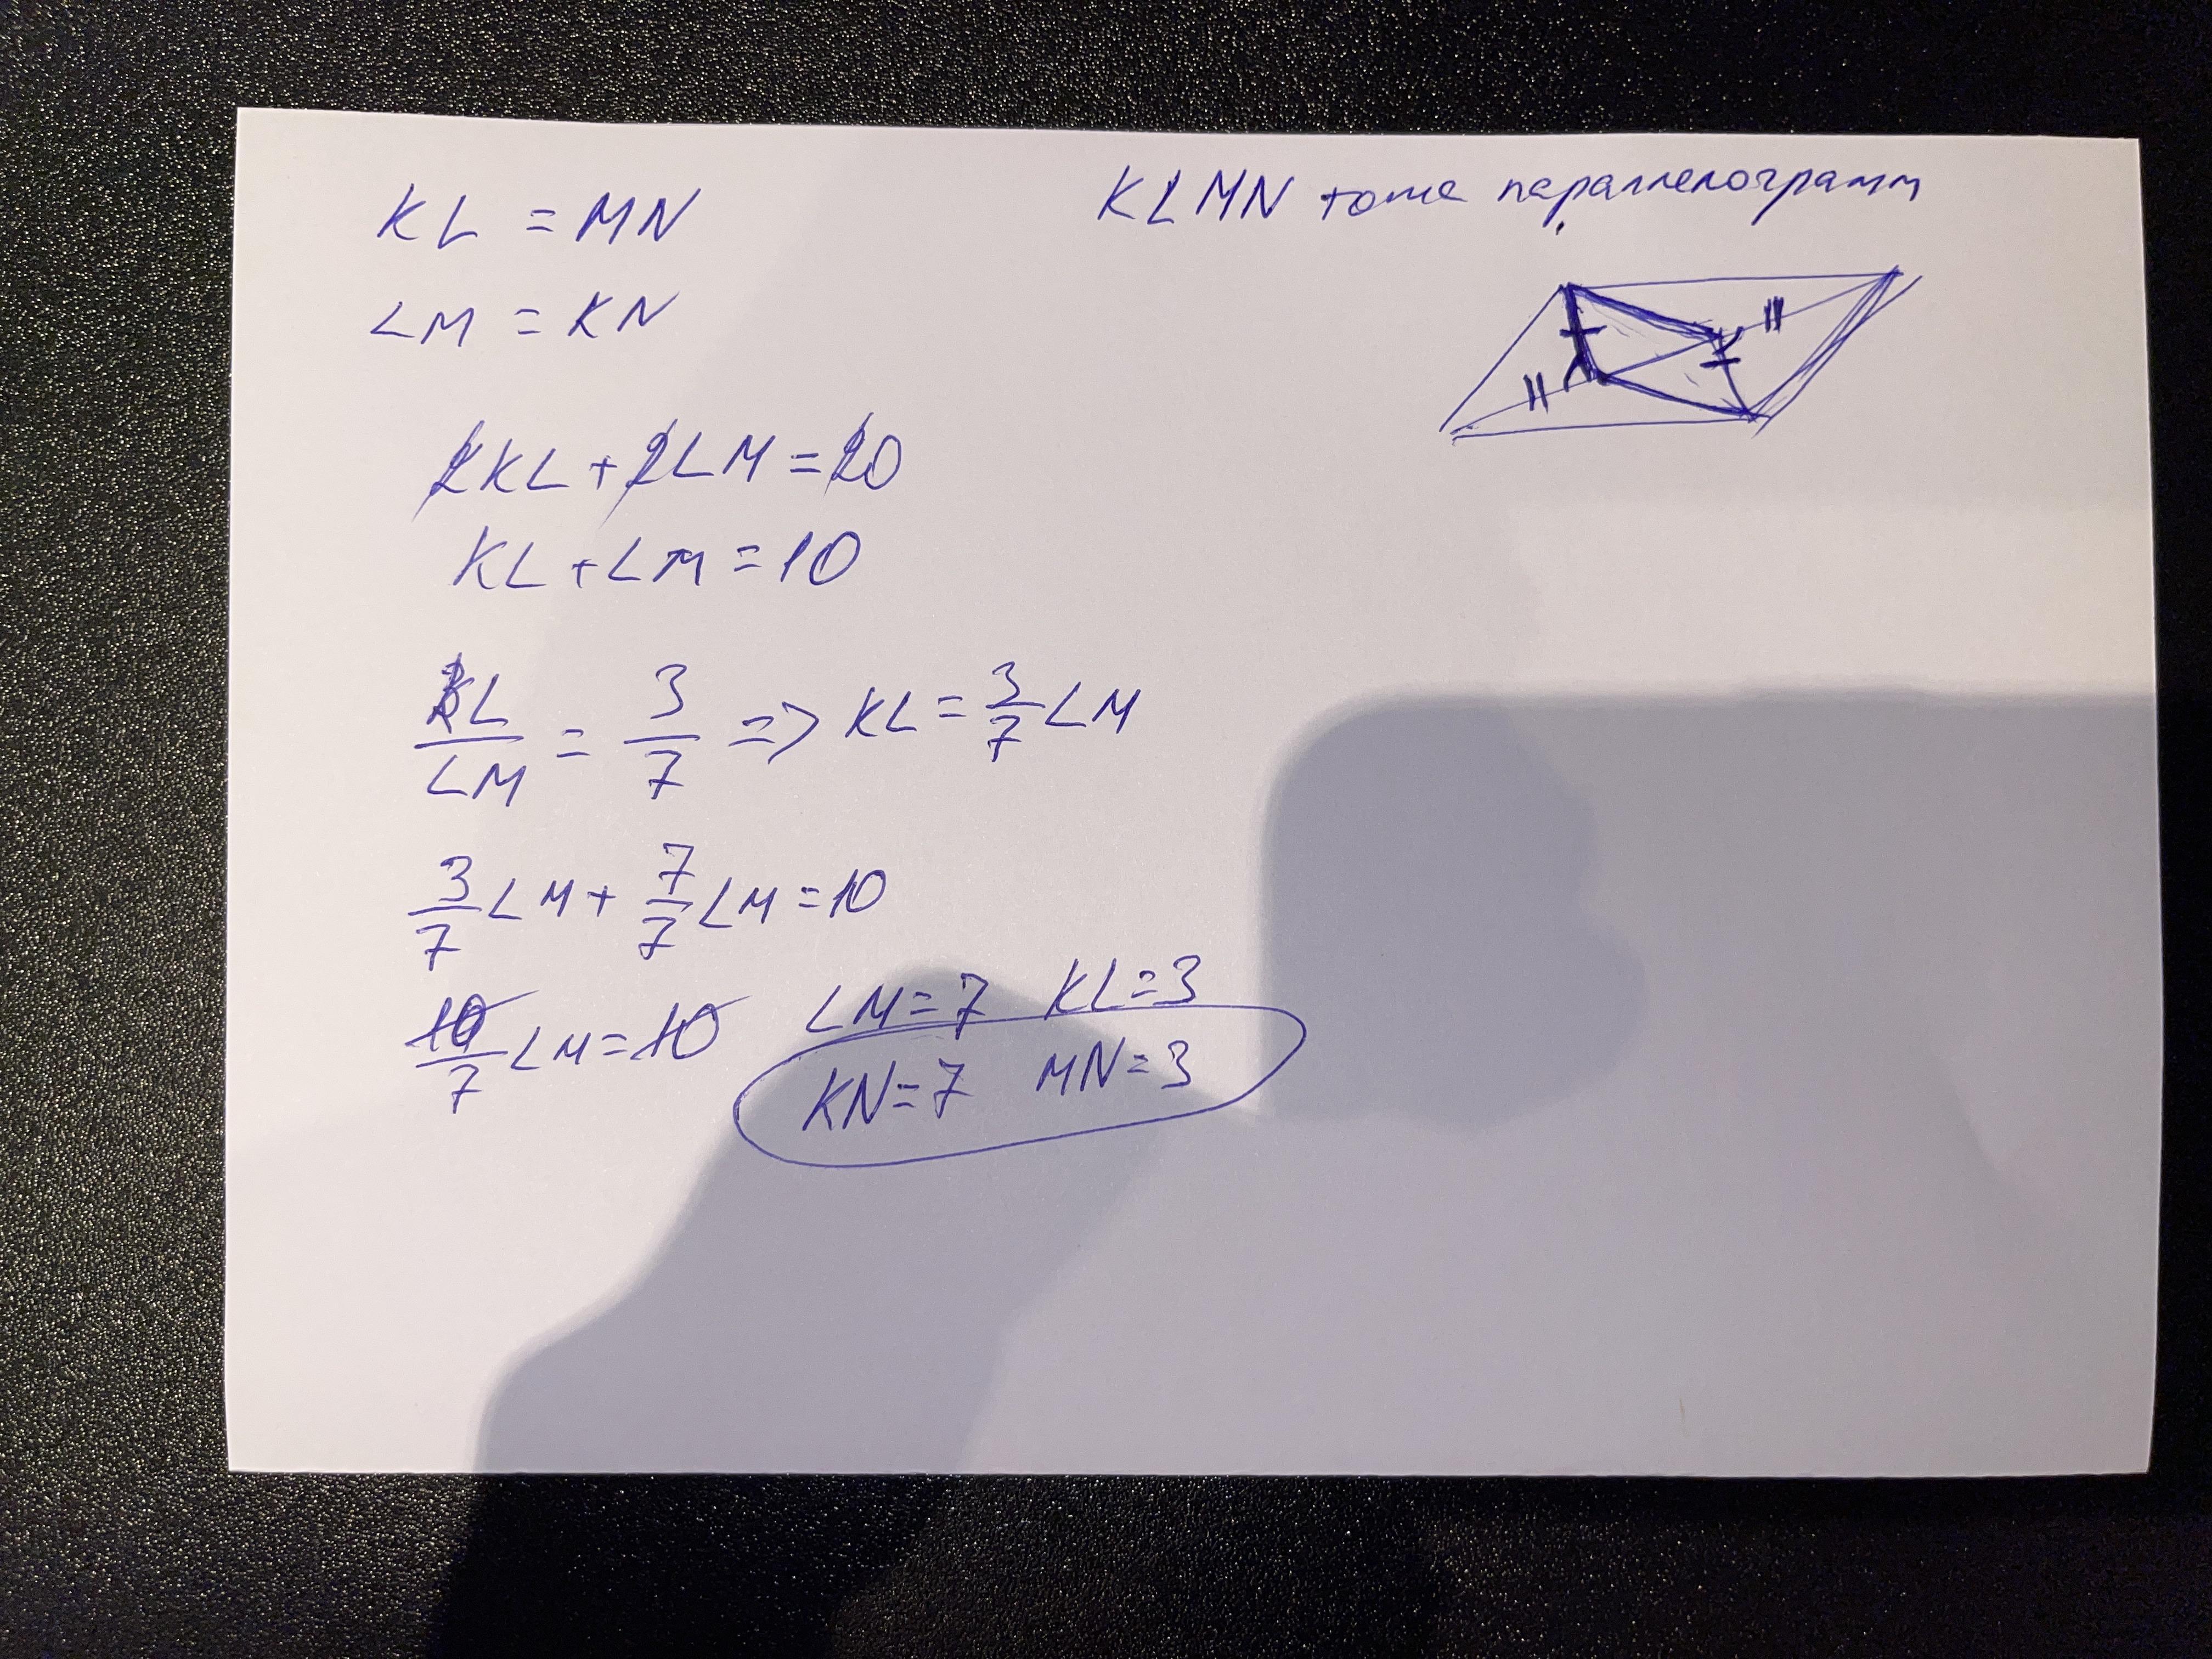 KLMN тоже параллелограмм
KL = MN
LM = KN
2KL + 2LM = 20
KL + LM = 10
KL/LM = 3/7 => KL = 3/7 LM
3/7 LM + 7/7 LM = 10
10/7 LM = 10 LM = 7 KL = 3
KN = 7 MN = 3